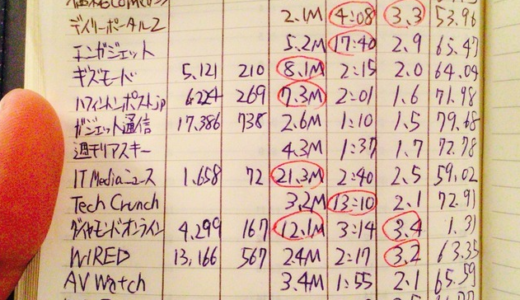 2.1M 4:08 3.3 53.96
デイリーポータルZ
エンガジェット 5.2M 17:40 2.9 65.47
ギズモード 5,121 210 8.1M 2:15 2.0 64.04
ハフィントンポストjp 6224 269 7.3M 2:01 1.6 71.98
ガジェット通信 17,386 738 2.6M 1:10 1.5 79.48
週刊アスキー 4.3M 1:37 1.7 72.78
IT Mediaニュース 1,658 72 21.3M 2:40 2.5 59.02
Tech Crunch 3.2M 13:10 2.1 72.91
ダイヤモンドオンライン 4,299 167 12.1M 3:14 3.4 1.31
WIRED 13,166 567 24M 2:17 3.2 63.35
AV Watch 3.4M 1:55 2.1 65.59